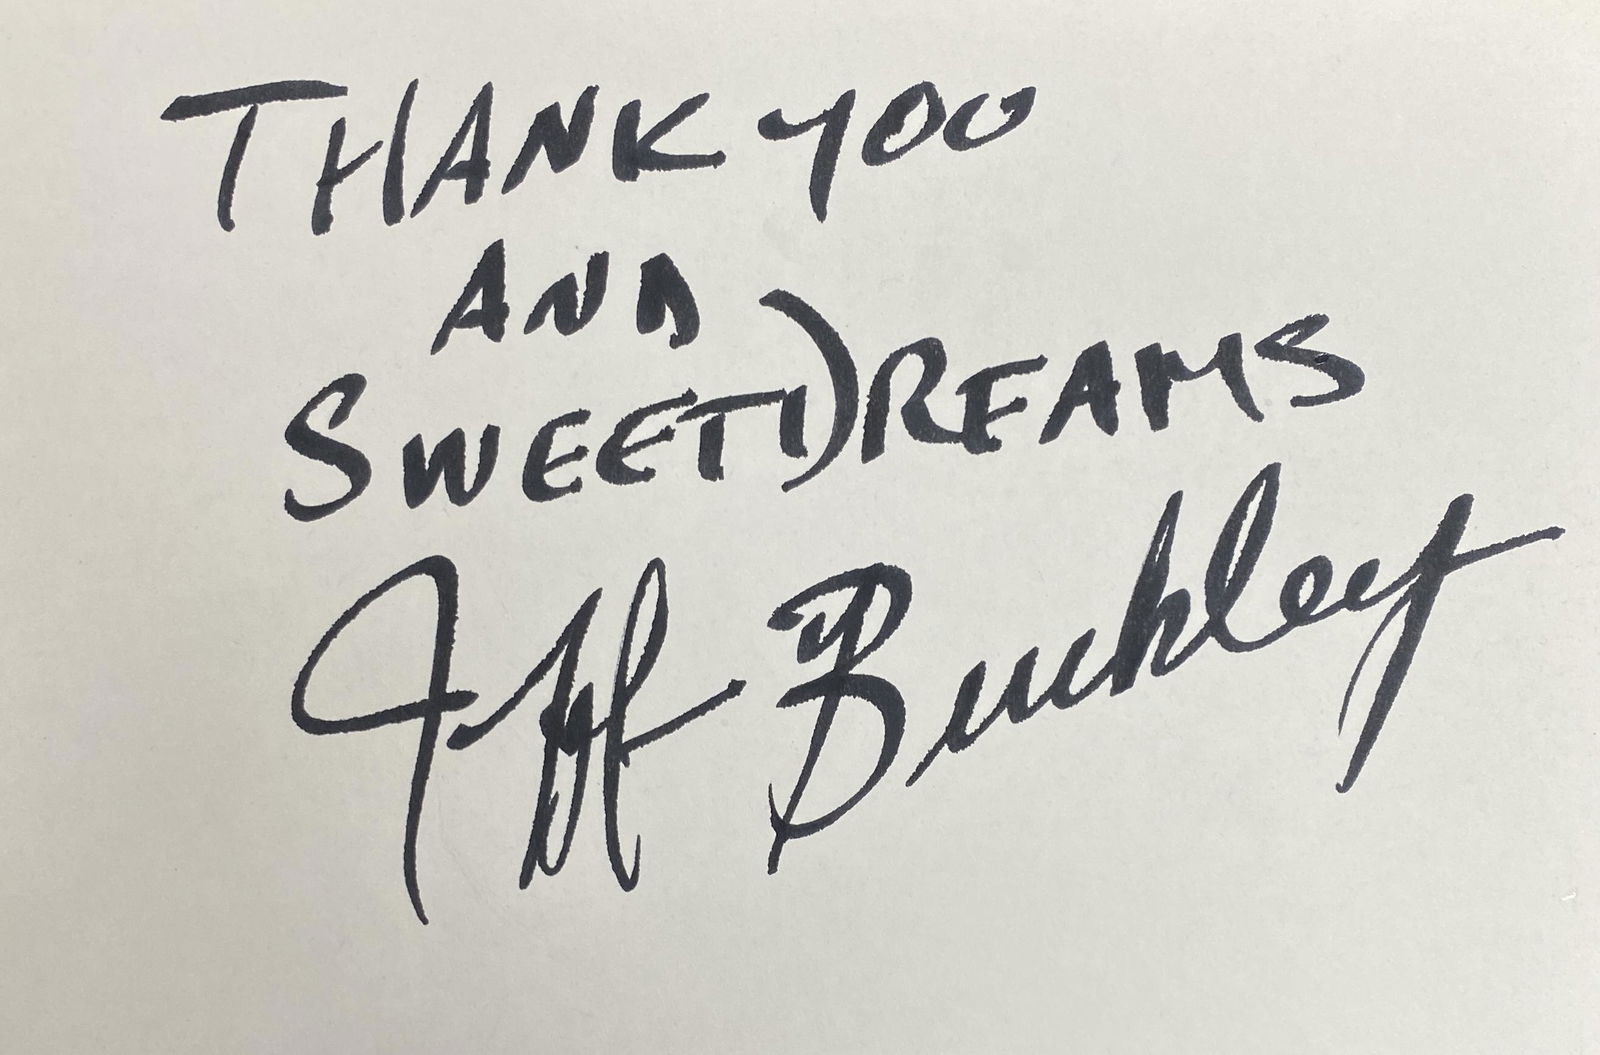 THANK YOU
AND
SWEET DREAMS
Jeff Buckley